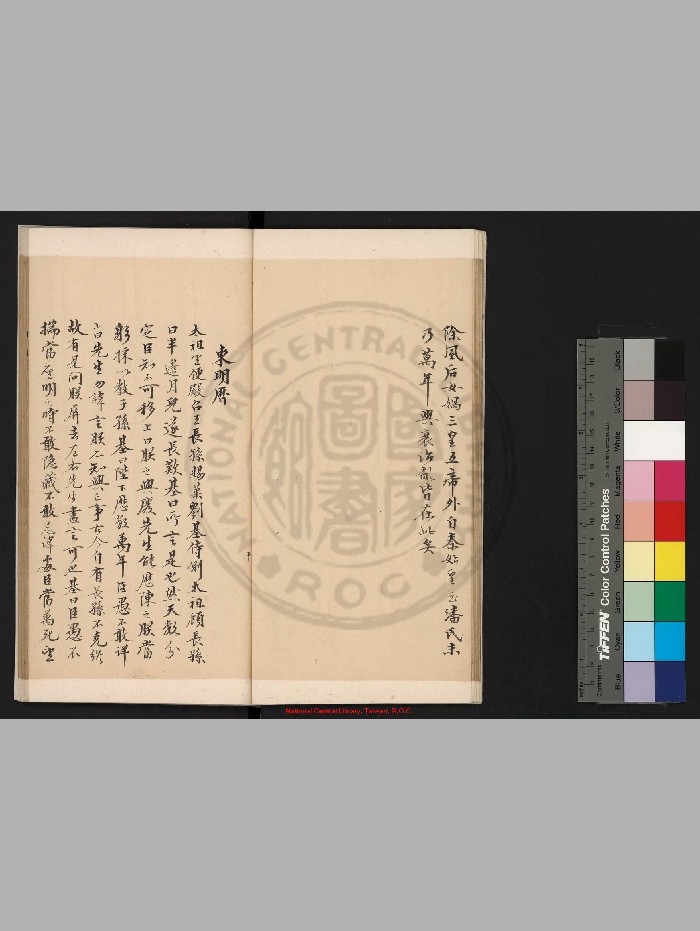 除風后女媧三皇五帝外自秦始皇至潘氏末
乃萬年興衰治亂皆在此矣
東明曆
太祖坐便殿召王長孫賜菓劉基侍側太祖顧長孫
曰半邊月兒遂長歎基曰所言是也與天數分
定臣知不可移上曰朕之興廢先生能歷陳之朕當
躬採以教子孫基曰陛下歷數萬年臣愚不敢詳
言先生勿諱言朕知興亡事古今自有長孫不克終
故有是問朕屏去左右先生盡言可也基曰臣愚不
揣當 明之時不敢隱藏不敢忌諱 臣當萬死
NATIONAL CENTRAL LIBRARY
ROC
國家圖書館
National Central Library, Taiwan, R.O.C.
TIFFEN Color Control Patches
Blue
Cyan
Green
Yellow
Red
Magenta
White
3/Color
Black
Centimetres
Inches